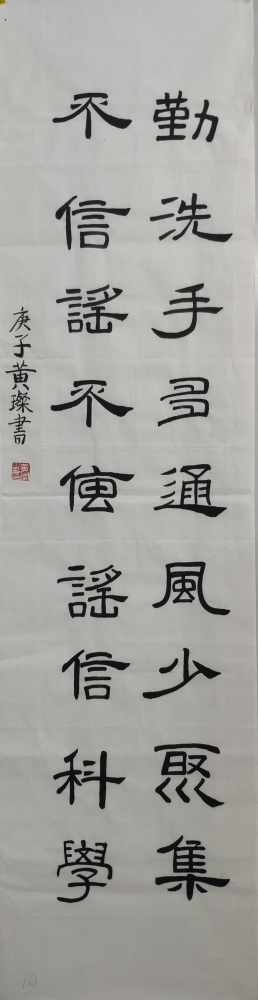 勤洗手多通風少聚集
不信謡不傳謡信科學
庚子黄璨書
10